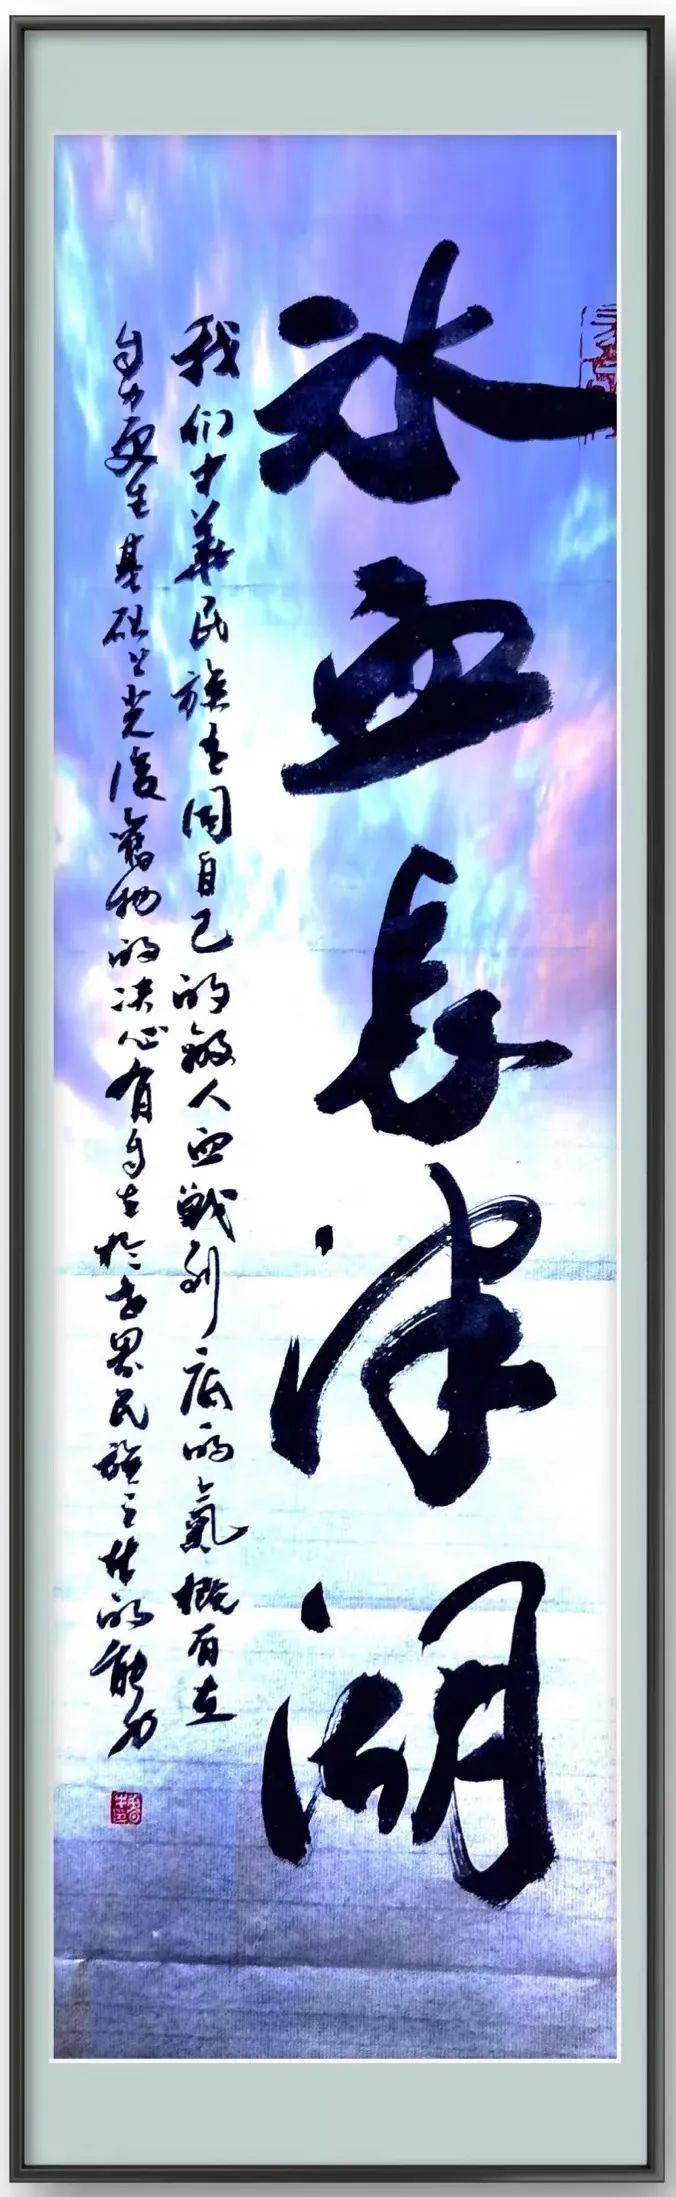 冰血長津湖
我们中華民族有同自己的敵人血戰到底的氣概有在
自力更生基础上光復舊物的决心有自立於世界民族之林的能力